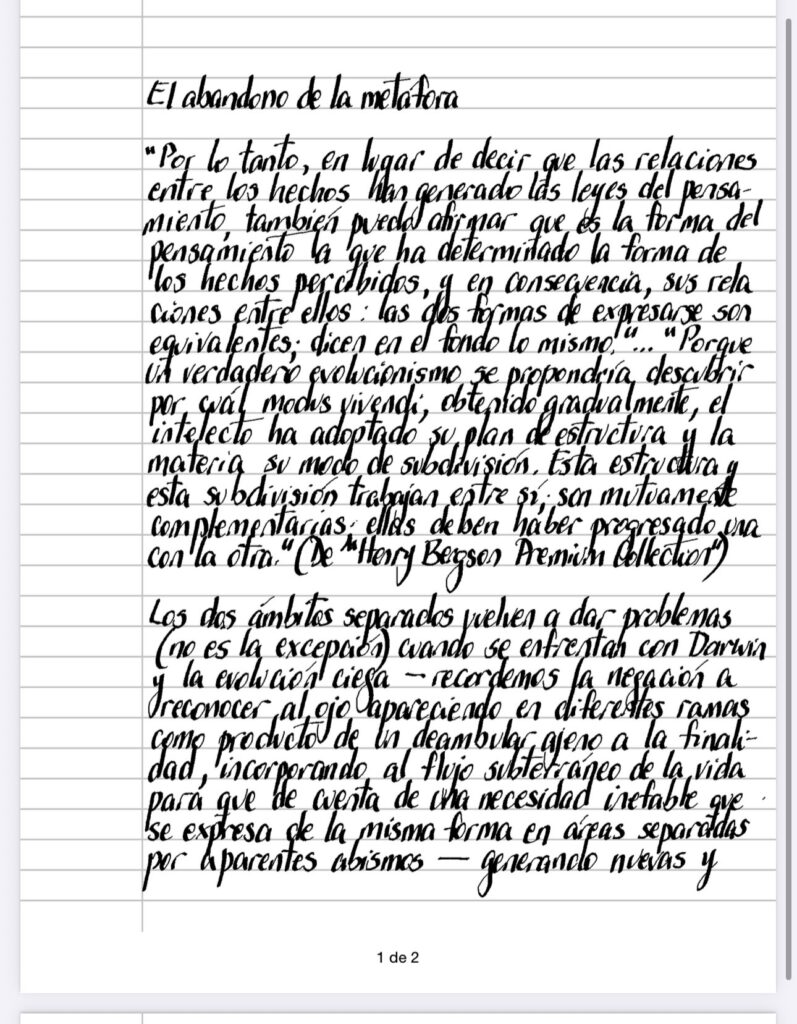 El abandono de la metáfora
"Por lo tanto, en lugar de decir que las relaciones
entre los hechos han generado las leyes del pensa-
miento, también puedo afirmar que es la forma del
pensamiento la que ha determinado la forma de
los hechos percibidos, y en consecuencia, sus rela
ciones entre ellos: las dos formas de expresarse son
equivalentes; dicen en el fondo lo mismo."... "Porque
un verdadero evolucionismo se propondría descubrir
por cuál modus vivendi, obtenido gradualmente, el
intelecto ha adoptado su plan de estructura y la
materia su modo de subdivisión. Esta estructura y
esta subdivisión trabajan entre sí; son mutuamente
complementarias; ellas deben haber progresado una
con la otra." (De "Henry Bergson Premium Collection")
Los dos ámbitos separados vuelven a dar problemas
(no es la excepción) cuando se enfrentan con Darwin
y la evolución ciega — recordemos la negación a
reconocer al ojo apareciendo en diferentes ramas
como producto de un deambular ajeno a la finali-
dad, incorporando al flujo subterráneo de la vida
para que de cuenta de una necesidad inefable que
se expresa de la misma forma en áreas separadas
por aparentes abismos — generando nuevas y
1 de 2